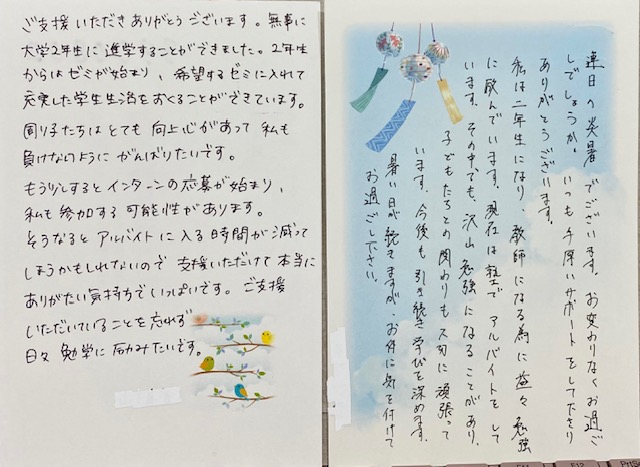 ご支援いただきありがとうございます。無事に
大学2年生に進学することができました。2年生
からはゼミが始まり、希望するゼミに入れて
充実した学生生活をおくることができています。
周りの子たちはとても向上心があって私も
負けないようにがんばりたいです。
もう少しするとインターンの応募が始まり、
私も参加する可能性があります。
そうなるとアルバイトに入る時間が減って
しまうかもしれないので支援いただけて本当に
ありがたい気持ちでいっぱいです。ご支援
いただいていることを忘れず
日々勉学に励みたいです。
連日の炎暑でございます。お変わりなくお過ご
しでしょうか。いつも手厚いサポートをして下さり
ありがとうございます。
私は二年生になり教師になる為に益々勉強
に励んでいます。現在は塾でアルバイトをして
います。その中でも、沢山勉強になることがあり、
子どもたちとの関わりも大切に頑張って
います。今後も引き続き学びを深めます。
暑い日が続きますが、お体に気を付けて
お過ごし下さい。
F11
F12